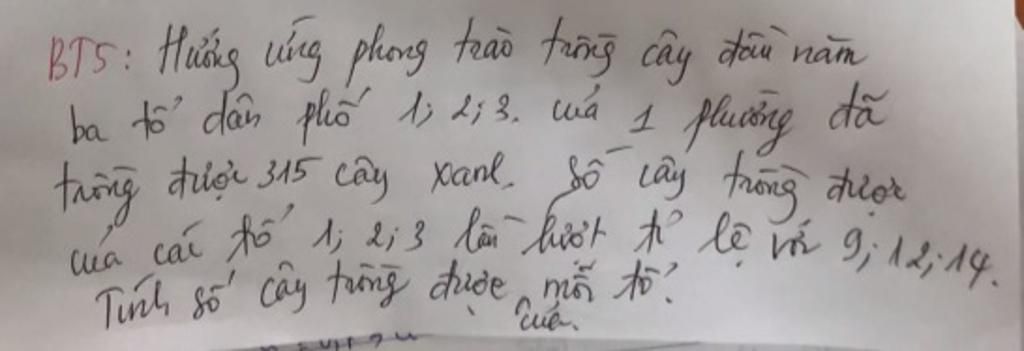 BT5: Hưởng ứng phong trào trồng cây đầu năm
ba tổ dân phố 1; 2; 3. của 1 phường đã
trồng được 315 cây xanh. Số cây trồng được
của các tổ 1; 2; 3 lần lượt tỉ lệ với 9; 12; 14.
Tính số cây trồng được của mỗi tổ.